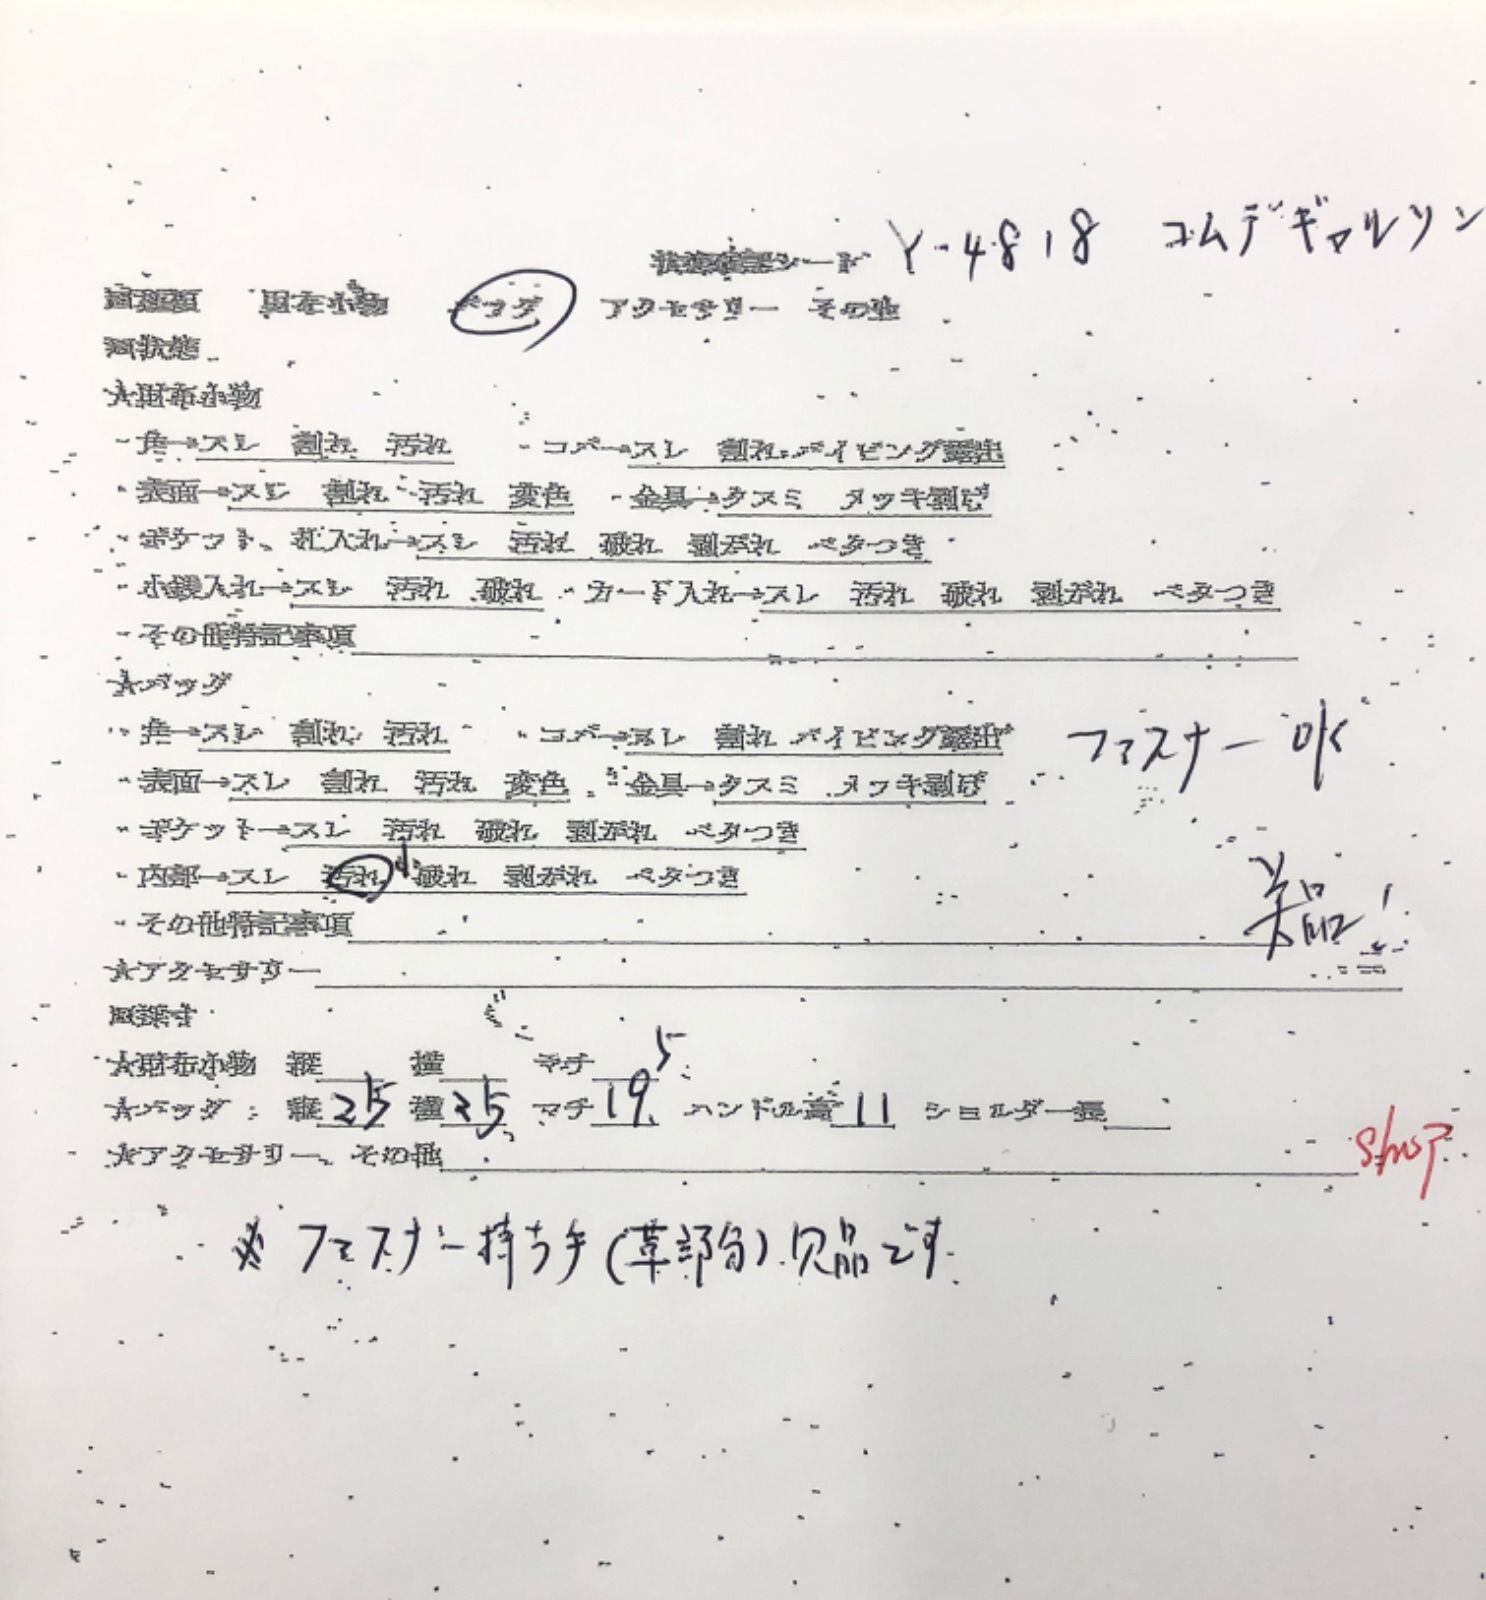 状態確認シート Y-4818 コムデギャルソン
回種類 財布小物 バッグ アクセサリー その他
回状態
★財布小物
・角→スレ 割れ 汚れ ・コバ→スレ 割れ パイピング露出
・表面→スレ 割れ 汚れ 変色 ・金具→クスミ メッキ剥げ
・ポケット、札入れ→スレ 汚れ 破れ 剥がれ ベタつき
・小銭入れ→スレ 汚れ 破れ ・カード入れ→スレ 汚れ 破れ 剥がれ ベタつき
・その他特記事項
★バッグ
・角→スレ 割れ 汚れ ・コバ→スレ 割れ パイピング露出 ファスナー OK
・表面→スレ 割れ 汚れ 変色 ・金具→クスミ メッキ剥げ
・ポケット→スレ 汚れ 破れ 剥がれ ベタつき
・内部→スレ 汚れ 破れ 剥がれ ベタつき
・その他特記事項 美品!
★アクセサリー
回採寸
★財布小物 縦 横 マチ
★バッグ 縦 25 横 35 マチ 19.5 ハンドル高 11 ショルダー長
★アクセサリー、その他
※ ファスナー持ち手(革部分)欠品です